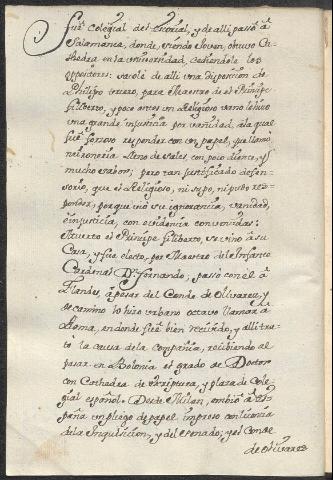 fué Colegial del Escorial, y de alli passó à
Salamanca, donde, siendo Joven, obtuvo Ca-
thedra en la Universidad, cediendole los
oppositores: sacole de alli una disposicion de
Philippo tercero, para Maestro de el Principe
Filiberto, y poco antes un Religioso
una grande injusticia por vanidad, à la qual
fué forsoso responder con un papel, que llamó
lleno de sales, con poco diente, y
mucho sabor; pero tan justificado defen-
sorio, que el Religioso, ni supo, ni pudo res-
ponder, porque vió su ignorancia, vanidad,
è injusticia, con evidencia convencidas:
Muerto el Principe Filiberto, se vino à su
Casa, y fue electo, por Maestro del Infante
Cardenal Dn. Fernando; passó con el à
Flandes, à pesar del Conde de Olivares, y
de camino lo hizo Urbano octavo llamar à
Roma, en donde fué bien recivido, y alli tra-
tó la causa de la Compañia, recibiendo al
pasar en Bolonia el grado de Doctor
con Cathedra de Escriptura, y plaza de Cole-
gial español. Desde Milan, embió à Es-
paña un pliego de papel impreso con licencia
de la Inquisicion, y del Senado; y el Conde
de Olivares